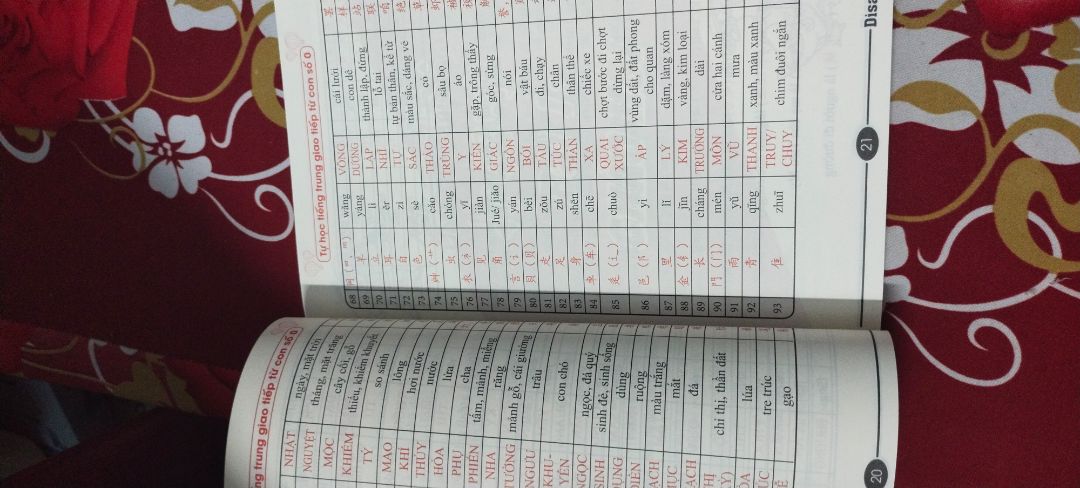 ng trung giao tiếp từ con số 0
NHẬT ngày, mặt trời
NGUYỆT tháng, mặt trăng
MỘC cây cối, gỗ
KHIẾM thiếu, khiếm khuyết
TỶ so sánh
MAO lông
KHÍ hơi nước
THỦY nước
HỎA lửa
PHỤ cha
PHIẾN tấm, mảnh, miếng
NHA răng
TƯỜNG mảnh gỗ, cái giường
NGƯU trâu
KHU-
YỂN con chó
NGỌC ngọc, đá quý
SINH sinh đẻ, sinh sống
DỤNG dùng
ĐIỀN ruộng
ẠCH màu trắng
MỤC mắt
ẠCH đá
HỊ chỉ thị, thần đất
lúa
ÚC tre trúc
gạo
20
Tự học tiếng trung giao tiếp từ con số 0
68 wǎng VÕNG cái lưới
69 羊 yáng DƯƠNG con dê
70 立 lì LẬP thành lập, đứng
71 耳 ěr NHĨ lỗ tai
72 自 zì TỰ tự bản thân, kể từ
73 色 sè SẮC màu sắc, dáng vẻ
74 艸 (艹) cǎo THẢO cỏ
75 虫 chóng TRÙNG sâu bọ
76 衣 (衤) yī Y áo
77 见 jiàn KIẾN gặp, trông thấy
78 角 Jué/ jiǎo GIÁC góc, sừng
79 言 (讠) yán NGÔN nói
80 貝 (贝) bèi BỐI vật báu
81 走 zǒu TẨU đi, chạy
82 足 zú TÚC chân
83 身 shēn THÂN thân thể
84 車 (车) chē XA chiếc xe
85 辵 (辶) chuò QUAI XUỐC chợt bước đi chợt dừng lại
86 邑 (阝) yì ẤP vùng đất, đất phong cho quan
87 里 lǐ LÝ dặm, làng xóm
88 金 (钅) jīn KIM vàng, kim loại
89 長 cháng TRƯỜNG dài
90 門 (门) mén MÔN cửa hai cánh
91 雨 yǔ VŨ mưa
92 青 qīng THANH xanh, màu xanh
93 隹 zhuī TRUY/ CHUY chim đuôi ngắn
21